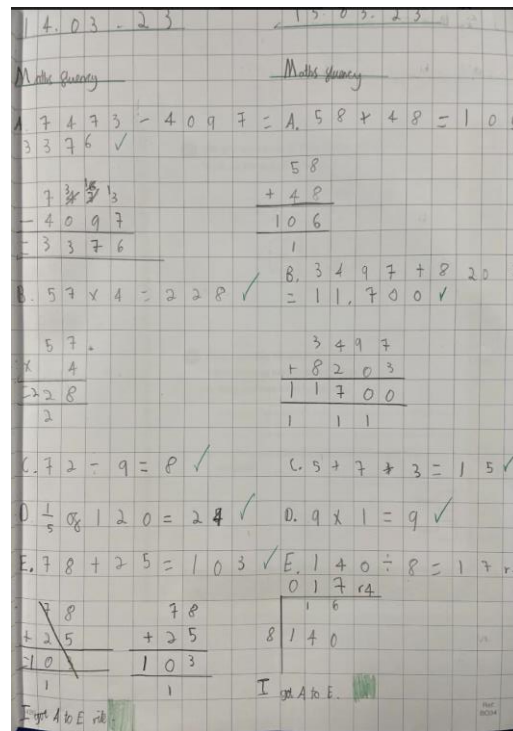 14.03-23
Maths fluency
A. 7473-4097=
3376 ✓
7 3 16 13
- 4097
= 3376
B. 57x4=228 ✓
57.
x 4
=228
2
C. 72÷9=8 ✓
D 1/5 of 120=24 ✓
E. 78+25=103 ✓
78
+25
=10
1
78
+25
103
1
I got A to E
15.03.23
Maths fluency
A. 58+48=10
58
+48
106
1
B. 3497+820
=11,700 ✓
3497
+8203
11700
1 1 1
C. 5+7+3=15 ✓
D. 9x1=9 ✓
E. 140÷8=17 r
017 r4
1 6
8 140
I got A to E.